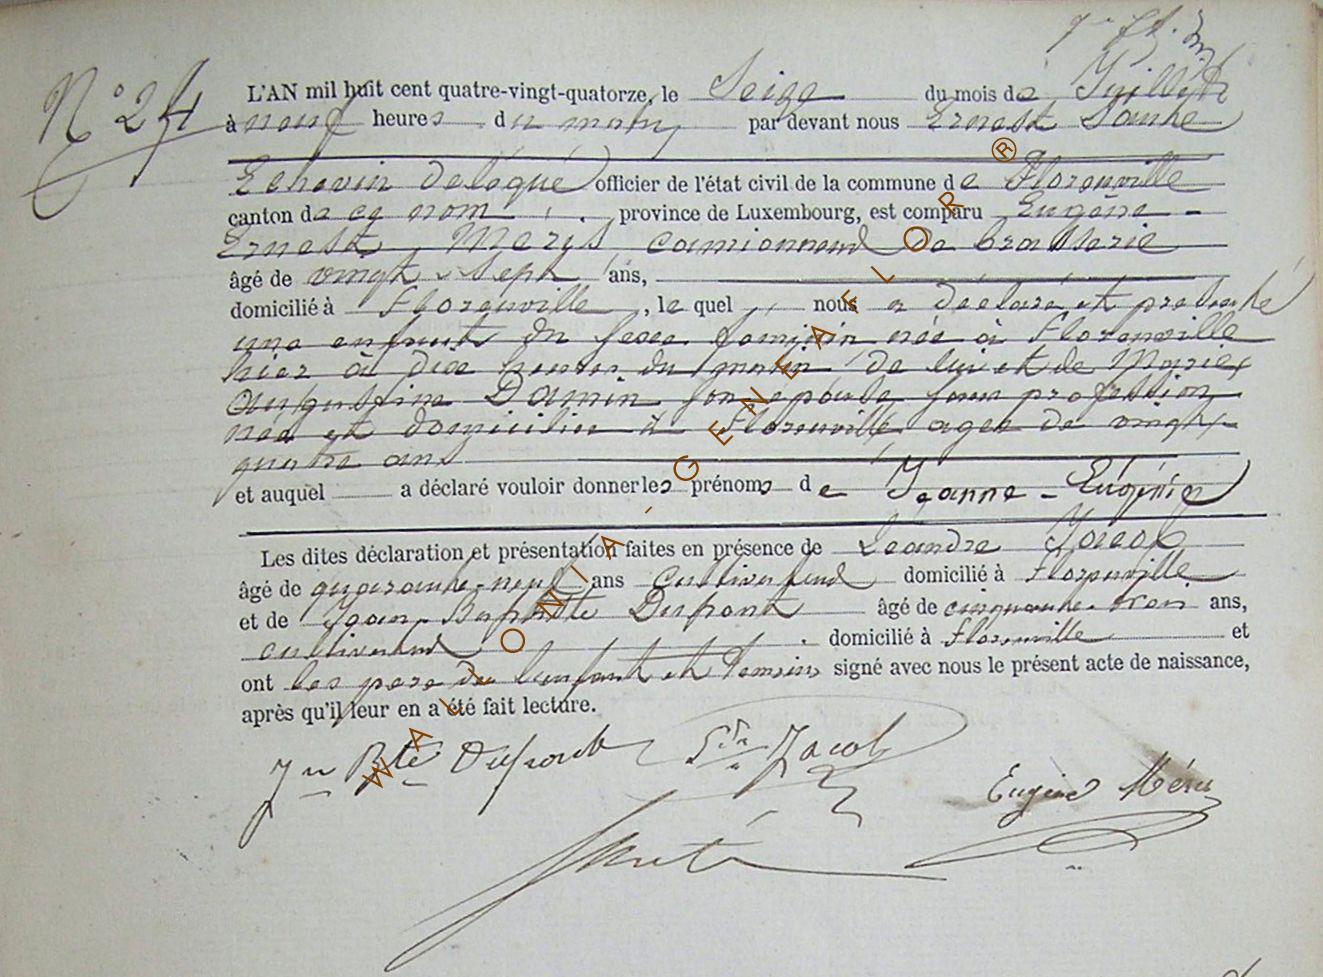 N° 24
L'AN mil huit cent quatre-vingt-quatorze, le Seize du mois de Juillet
à neuf heures du matin, par devant nous Ernest Santé
Echevin délégué officier de l'état civil de la commune de Florenville
canton de ce nom, province de Luxembourg, est comparu Eugène-
Ernest Meris camionneur de brasserie
âgé de vingt-sept ans,
domicilié à Florenville, le quel nous a déclaré et présenté
une enfant du sexe féminin née à Florenville
hier à dix heures du matin de lui et de Marie
Augustine Damin son épouse sans profession
née et domiciliée à Florenville agée de vingt-
quatre ans
et auquel a déclaré vouloir donner les prénoms de Jeanne-Eugénie
Les dites déclaration et présentation faites en présence de Léandre Jacob
âgé de quarante-neuf ans cultivateur domicilié à Florenville
et de Jean-Baptiste Dupont âgé de cinquante-trois ans,
cultivateur domicilié à Florenville et
ont les père de l'enfant et témoins signé avec nous le présent acte de naissance,
après qu'il leur en a été fait lecture.
Jn Bte Dupont Jacob
Eugène Méris
Santé
WALLONIA-GENEAFLOR®